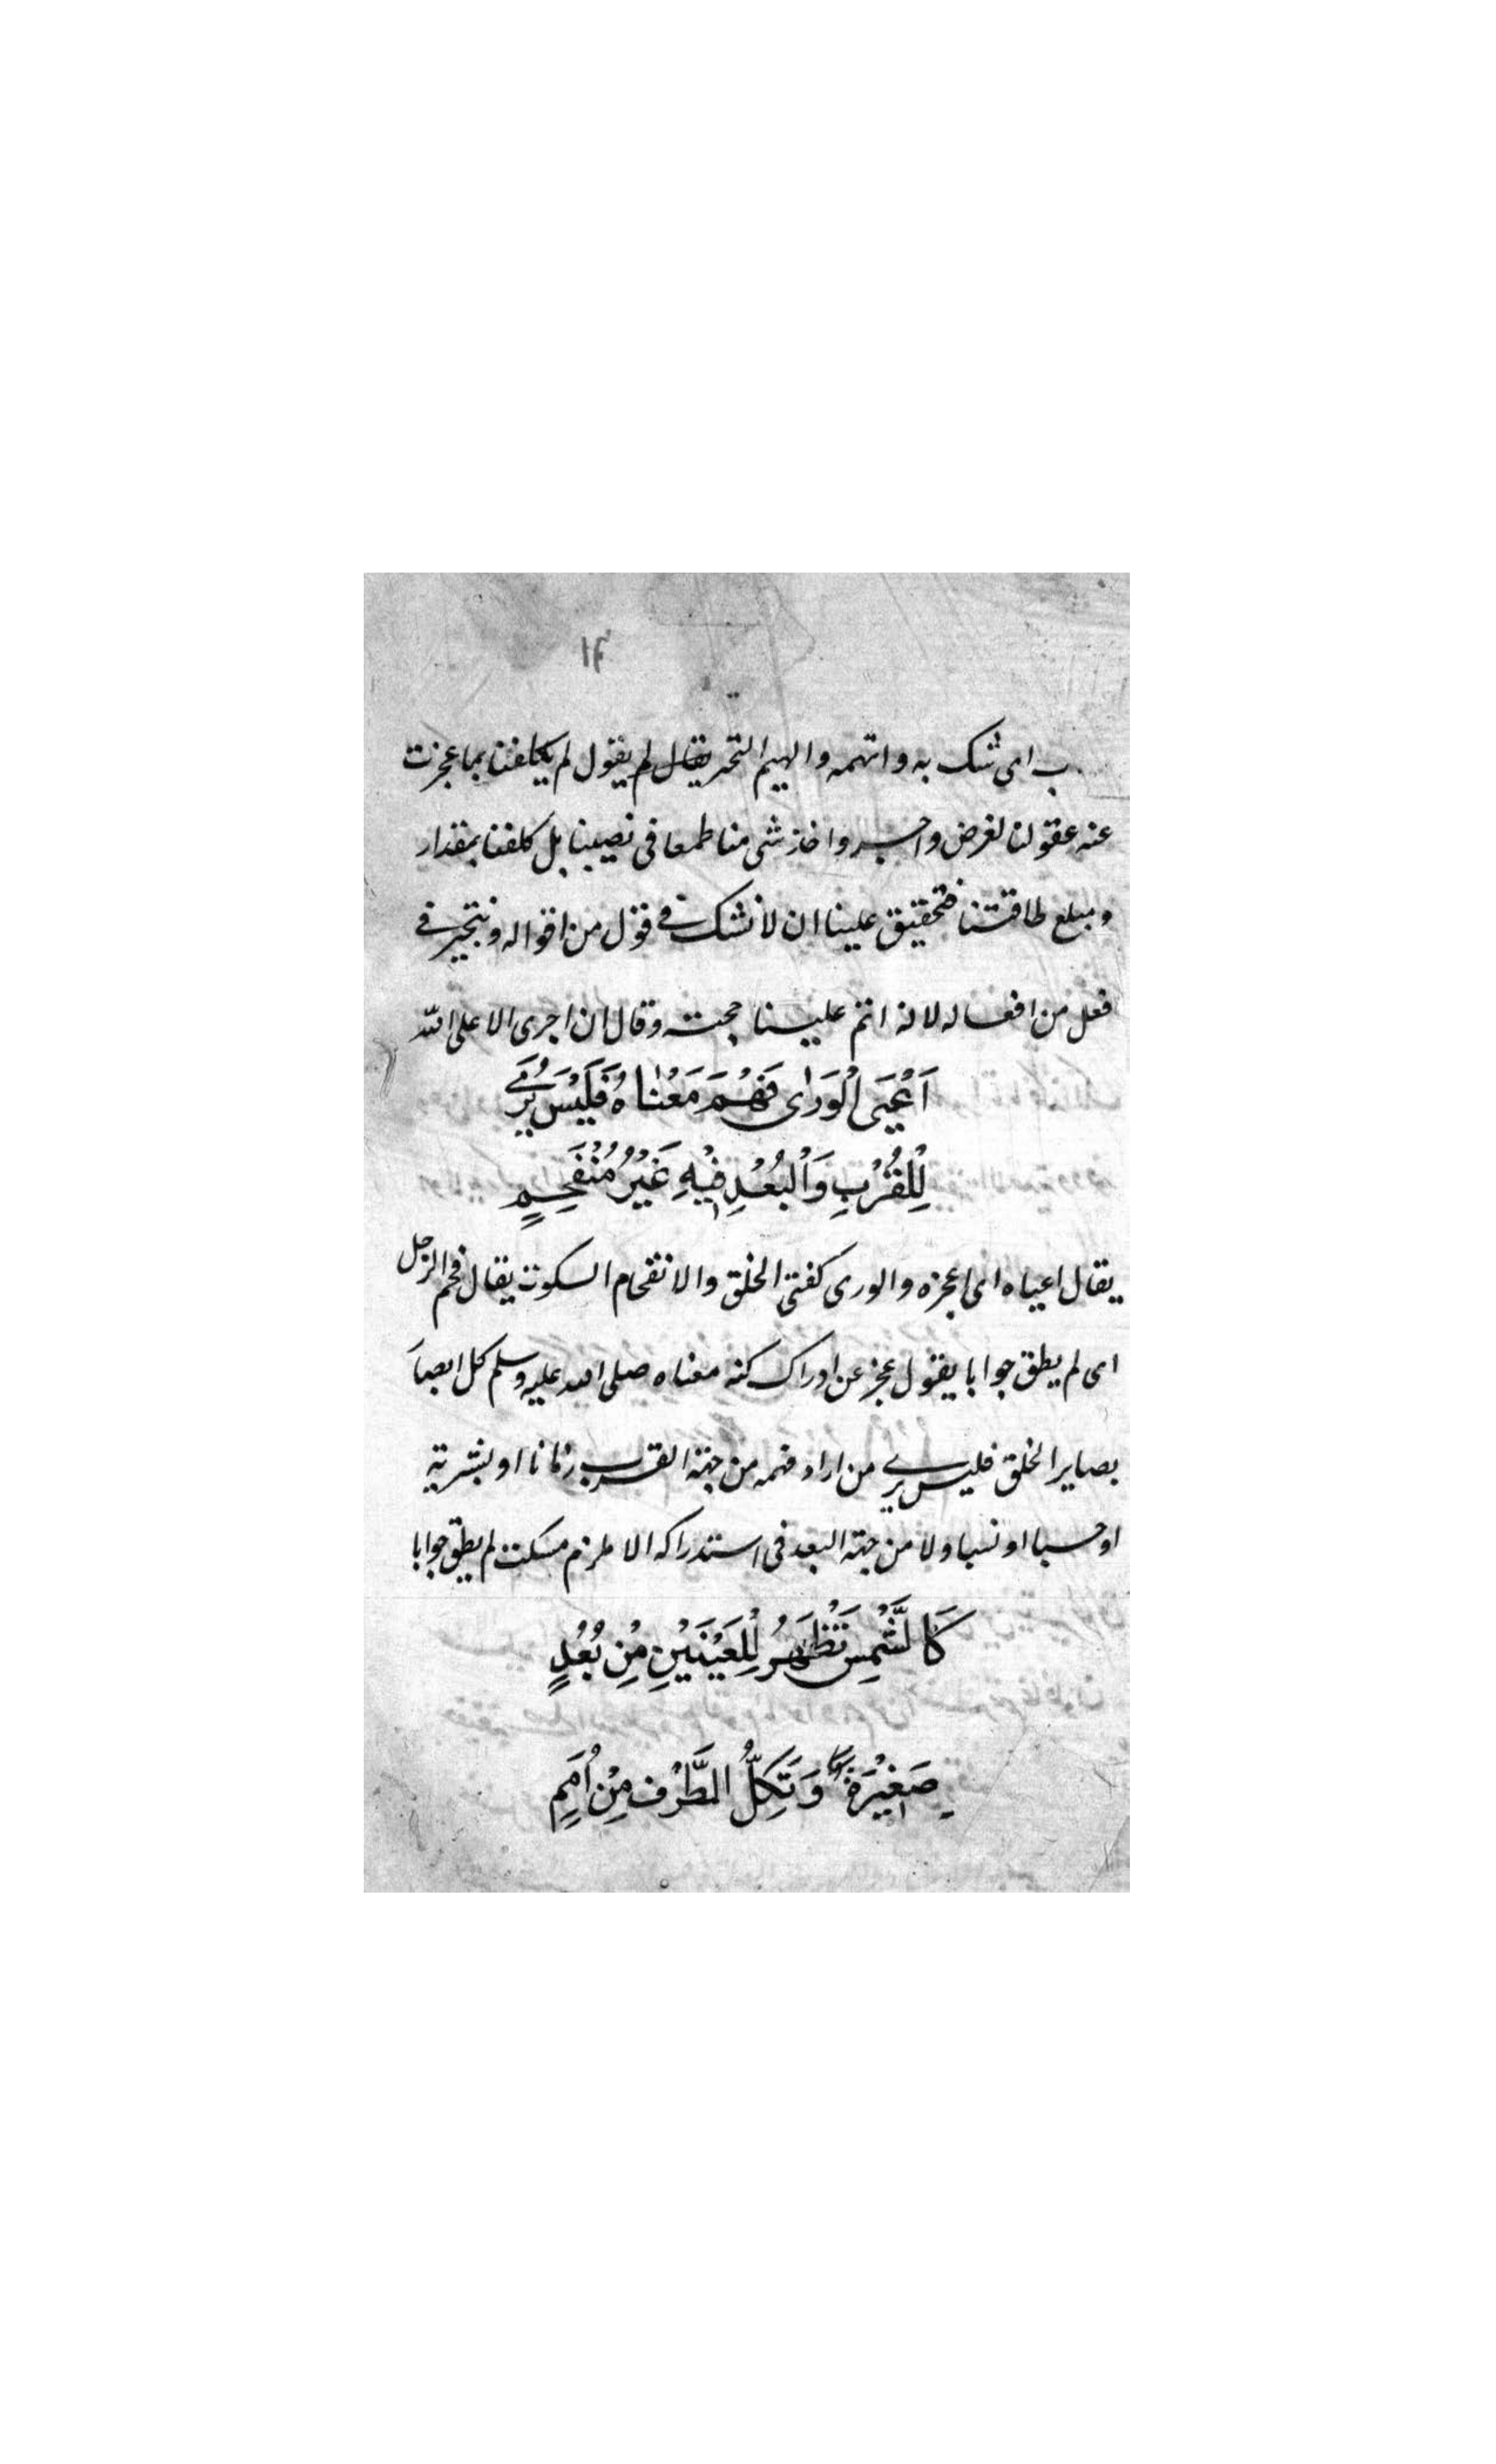 ۱۴
ب اى شك به واتهمه والهيم التحير يقال لم يقول لم يكلفنا بما عجزت
عنه عقولنا لغرض واجر واخذ شى منا طمعا فى نصيبنا بل كلفنا بمقدار
ومبلغ طاقتنا فتحقيق علينا ان لا نشك فى قول من اقواله ونتحير فى
فعل من افعاله لانه اتم علينا حجته وقال ان اجرى الا على الله
اَعْيَى الْوَرٰى فَهْمُ مَعْنٰاهُ فَلَيْسَ يُرٰى
لِلْقُرْبِ وَالْبُعْدِ فِيْهِ غَيْرُ مُنْفَحِمٍ
يقال اعياه اى اعجزه والورى كفتى الخلق والانفحام السكوت يقال فحم الرجل
اى لم يطق جوابا يقول عجز عن ادراك كنه معناه صلى الله عليه وسلم كل ابصا
بصاير الخلق فليس يرى من اراد فهمه من جهة القرب زمانا او بشرية
او حسبا او نسبا ولا من جهة البعد فى استدراكه الا ملزم مسكت لم يطق جوابا
كَالشَّمْسِ تَظْهَرُ لِلْعَيْنَيْنِ مِنْ بُعُدٍ
صَغِيْرَةً وَتَكِلُّ الطَّرْفَ مِنْ اُمَمِ